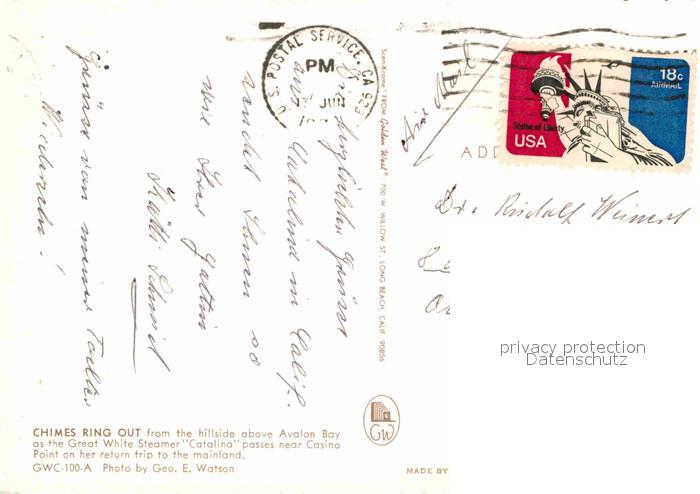 U.S. POSTAL SERVICE, CA
PM
JUN
18c
AIRMAIL
Statue of Liberty
USA
Air Mail
herzlichsten Grüsse
aus Catalina in Calif.
sendet Ihnen so
wie Ihrer Gattin
Käthi Schmid
Grüsse von meiner Tochter
Wiedersehn!
ScenKrome® FROM Golden West® 700 W. WILLOW ST., LONG BEACH, CALIF. 90806
Rudolf Weinert
privacy protection
Datenschutz
CHIMES RING OUT from the hillside above Avalon Bay
as the Great White Steamer "Catalina" passes near Casino
Point on her return trip to the mainland.
GWC-100-A Photo by Geo. E. Watson
GW
MADE BY